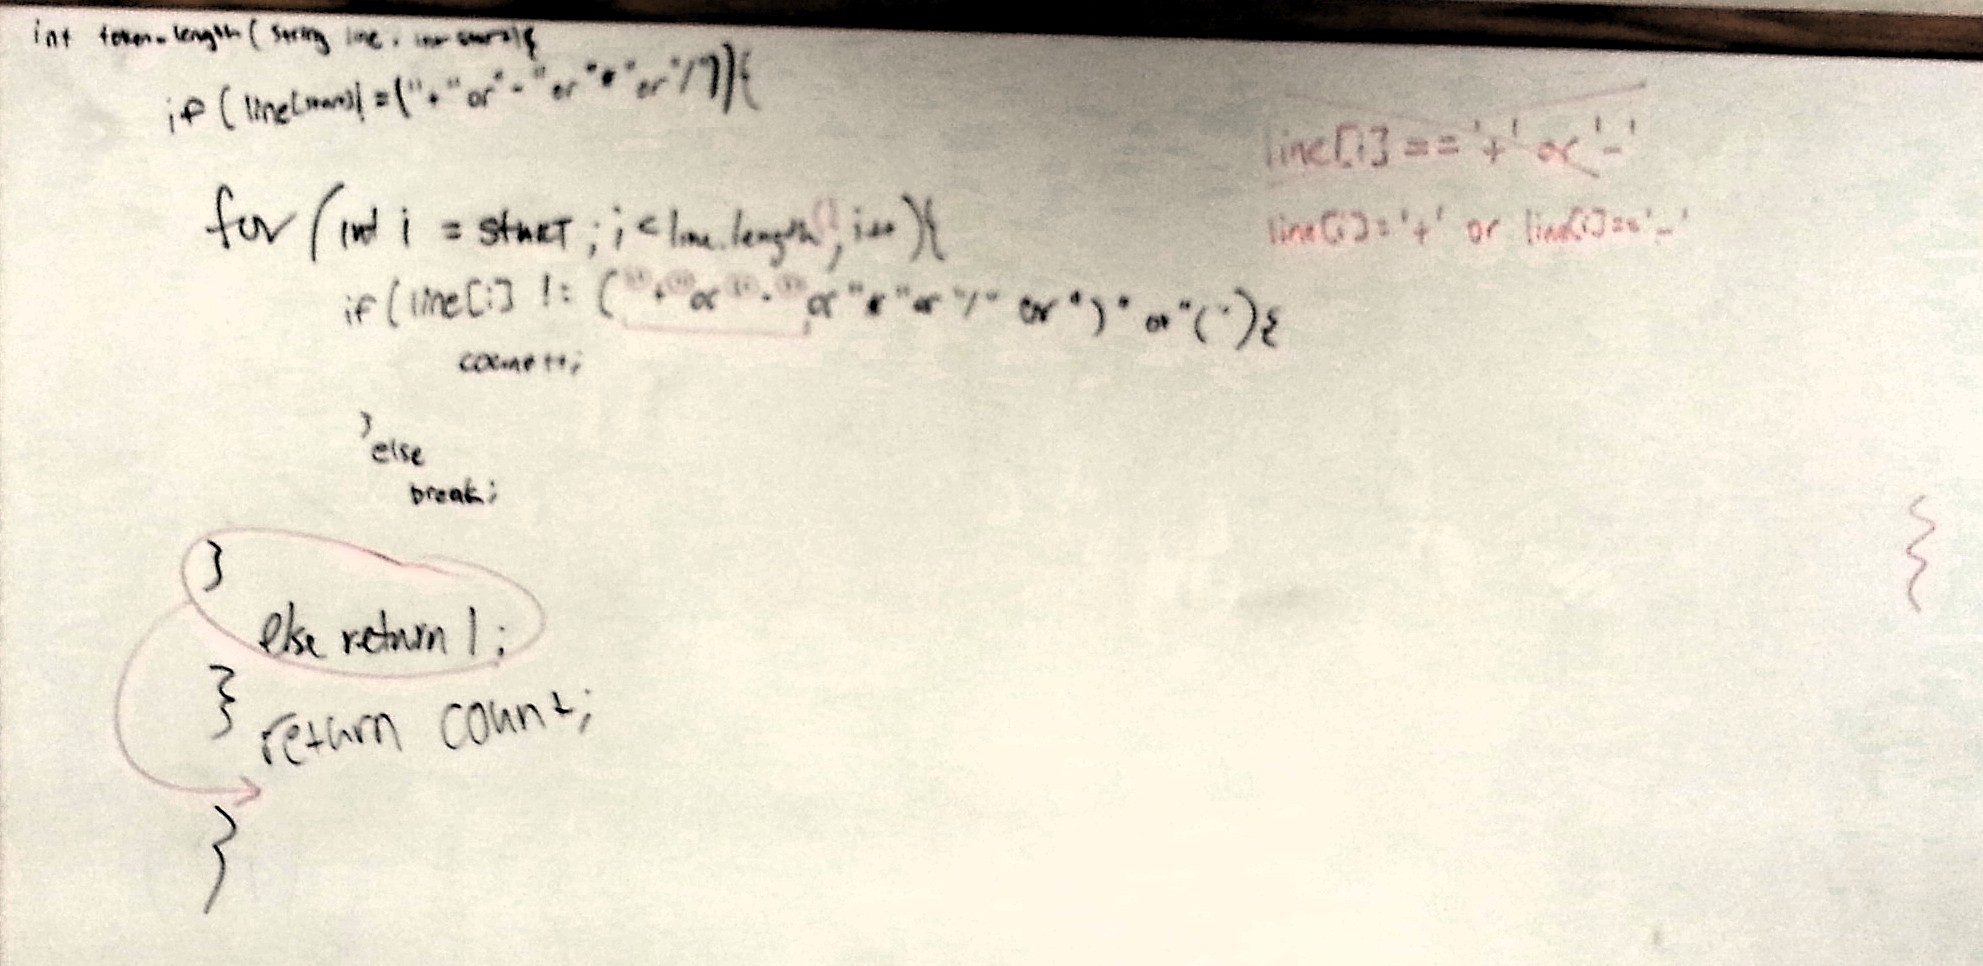 int token_length( string line, int start){
if ( line[start] != ("+" or "-" or "*" or "/")){
for (int i = start ; i < line.length(), i++){
if ( line[i] != ("+" or "-" or "*" or "/" or ")" or "("){
count++;
}
else
break;
}
else return 1;
}
} return count;
}
line[i] == '+' or '-'
line[i]='+' or line[i]=='-'